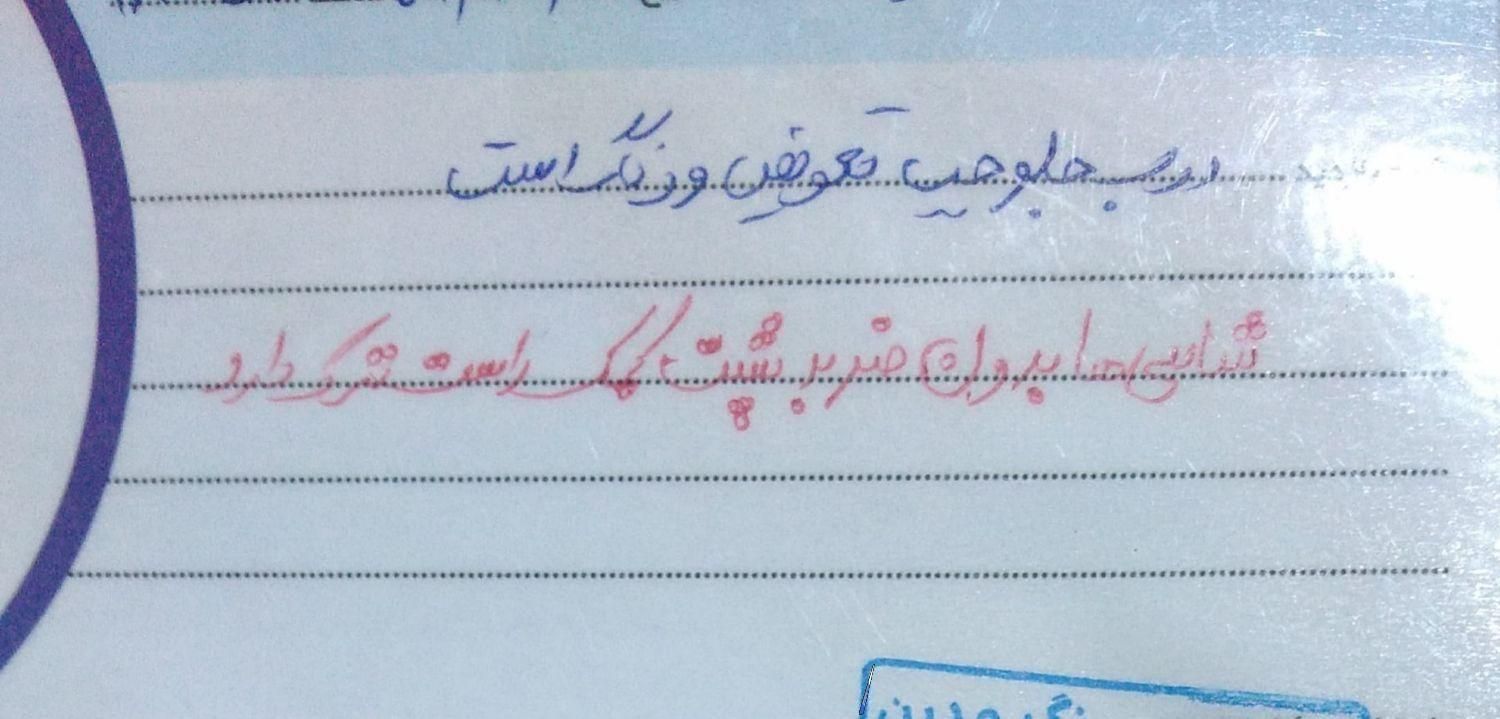 درب جلو چپ تعویض و رنگ است
شاسی ها بدون ضربه پشت کمک راست ترک دارد